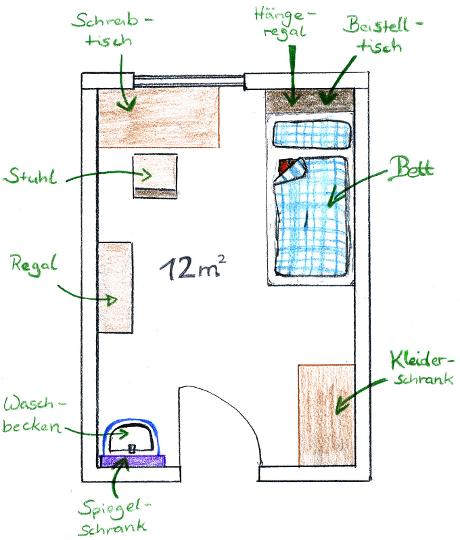 Schreib-
tisch
Hänge-
regal
Beistell-
tisch
Stuhl
Bett
Regal
12m²
Kleider-
schrank
Wasch-
becken
Spiegel-
schrank